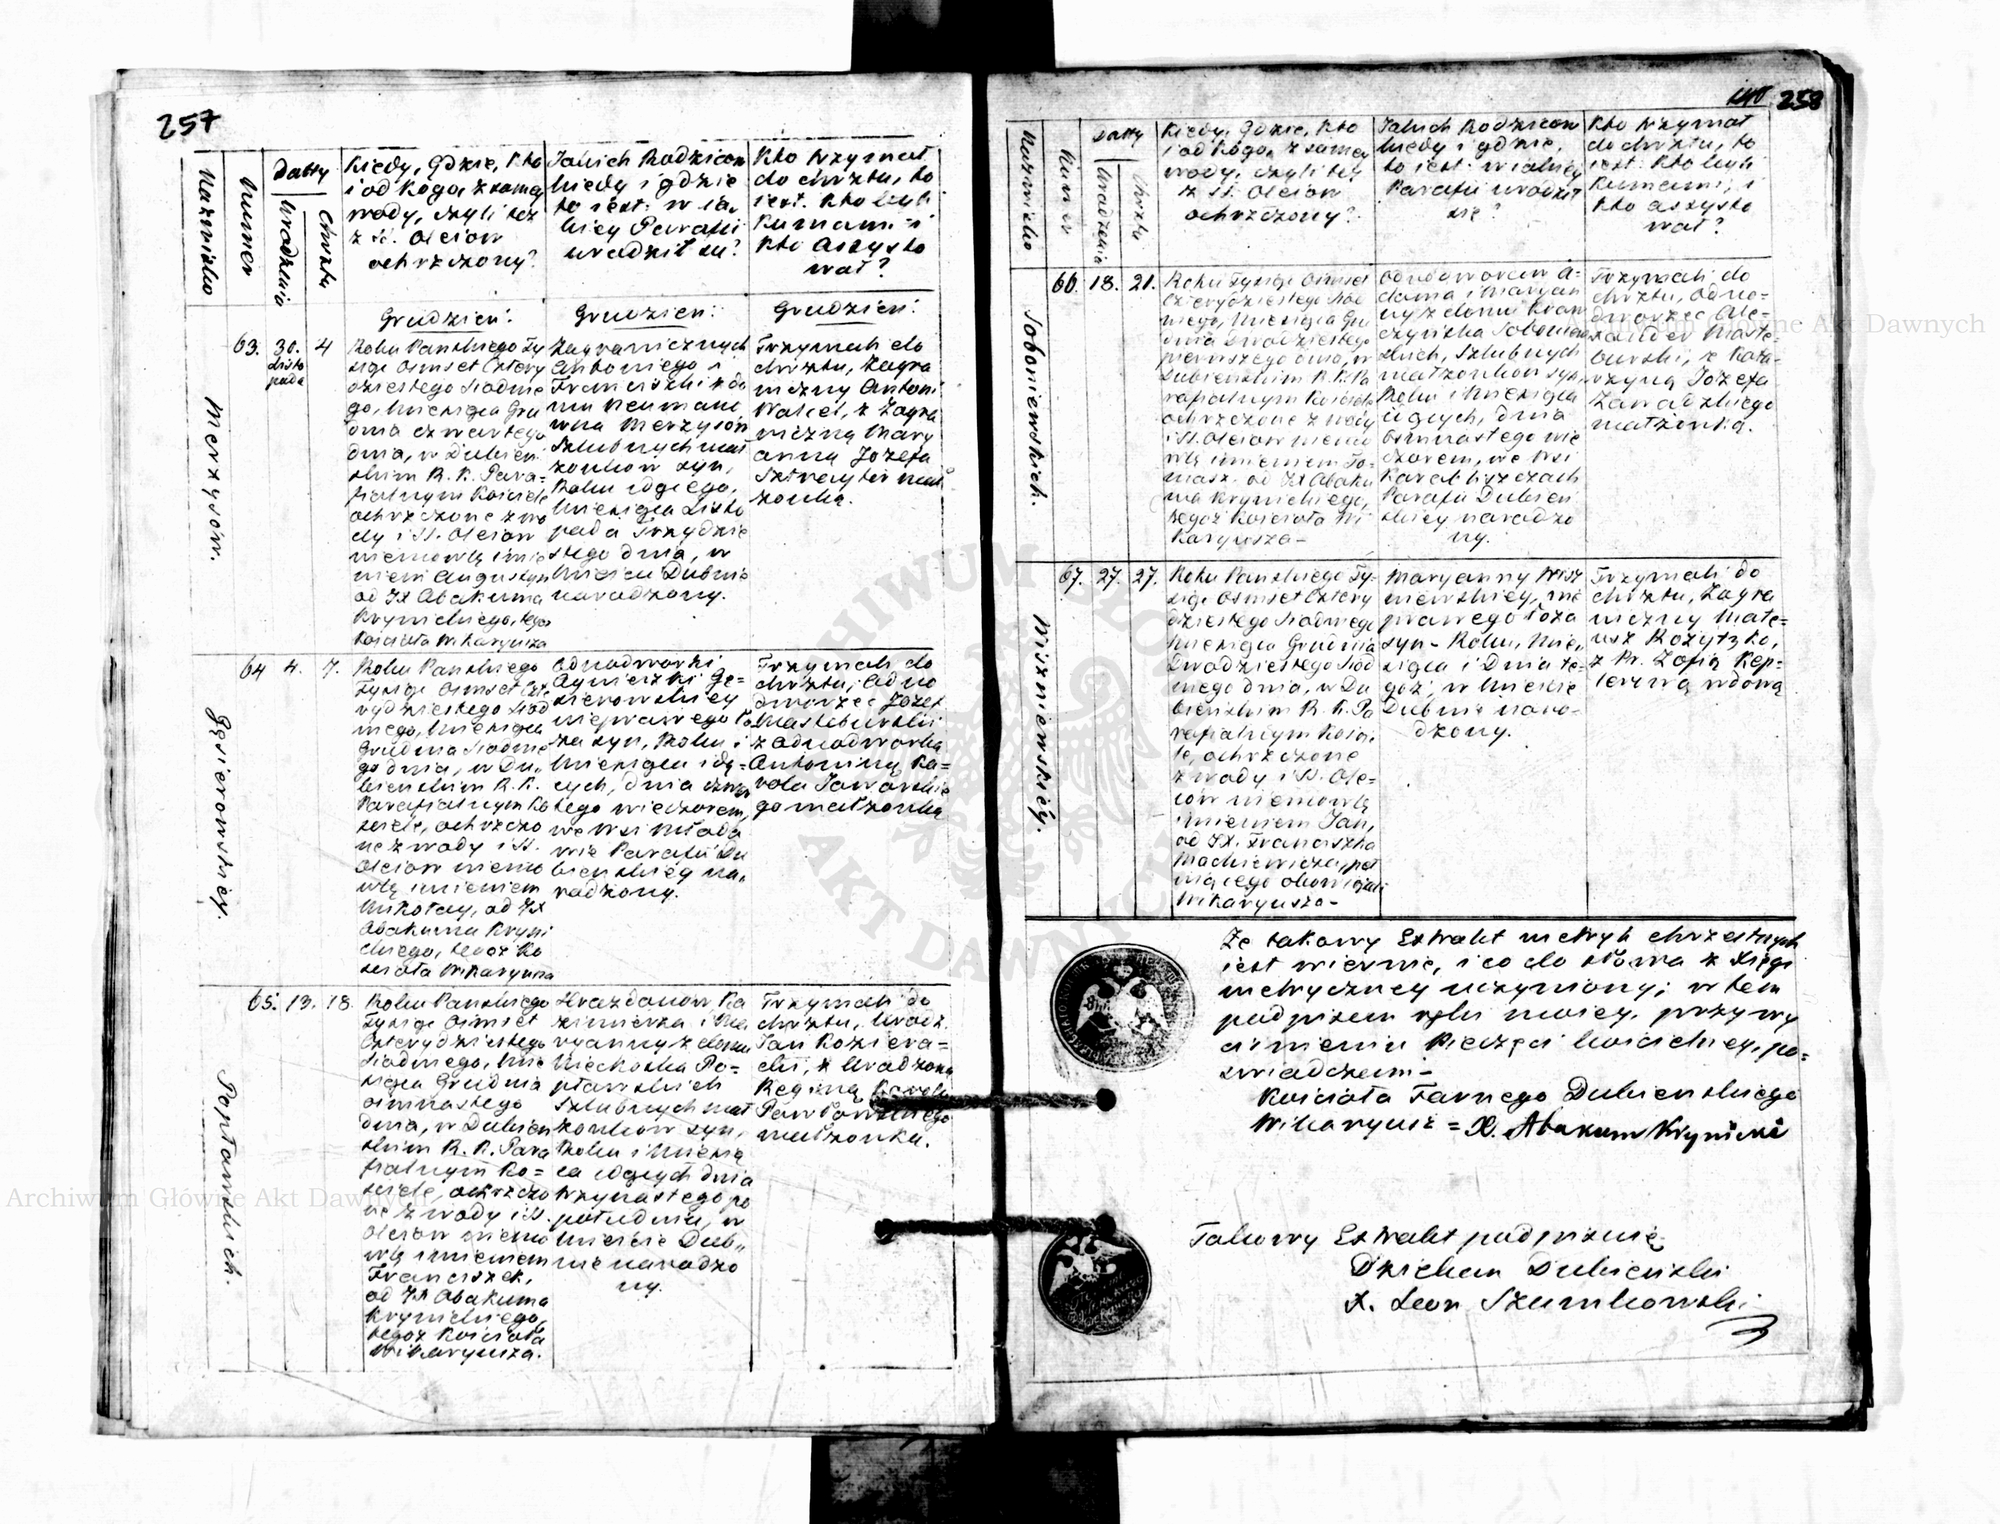 257
Nazwisko
Numer
Datty
Urodzenia
Chrztu
Kiedy, Gdzie, Kto
i od Kogo z samey
wody, czyli też
z SS. Oleiow
ochrzczony?
Jakich Rodzicow
kiedy i gdzie
to iest: w ia„
kiey Parafii
urodził się?
Kto trzymał
do chrztu, to
iest: Kto byli
Kumami i
Kto assysto
wał?
Grudzień:
Grudzień:
Grudzień:
Merzysów.
63.
30.
Listo
pada
4
Roku Panskiego Ty
siąc Osmset Cztery
dziestego Siodme
go, Miesiąca Gru
dnia czwartego
dnia, w Dubień
skim R. K. Para=
fialnym Kosciele
ochrzczone z wo
dy i SS. Oleiow
niemowlę imie
niem Augustyn
od JX Abakuma
Krynickiego, tego
Kościoła Wikaryusza
Zagranicznych
Antoniego i
Franciszki z do
mu Neumane
wna Merzysów
Szlubnych mał
żonków syn,
Roku idącego,
Miesiąca Listo
pada Trzydzie
stego dnia, w
Mieście Dubnie
narodzony.
Trzymali do
chrztu, Zagra
niczny Antoni
Walcel, z Zagra
niczną Mary
anną Jozefa
Sztreyter mał
żonką.
Gąsierowskiéy.
64
4.
7.
Roku Panskiego
Tysiąc Osmset Czte
rydziestego Siod
mego, Miesiąca
Grudnia Siodme
go dnia, w Du„
bienskim R. K.
Parafialnym Ko
sciele, ochrzczo
ne z wody i SS.
Oleiow niemo
wlę imieniem
Mikołay, od JX
Abakuma Kryni
ckiego, tegoż Ko
scioła Wikaryusza
Odnodworki
Agnieszki Gę=
sierowskiey
nieprawego ło
ża syn, Roku i
Miesiąca idą=
cych, dnia czwar
tego wieczorem,
we wsi Młoda
wie Parafii Du
bienskiéy na„
rodzony.
Trzymali do
chrztu, Odno
dworzec Jozef
Masteburski
z Odnodworką
Antoniną Ka=
rola Jaworskie
go małżonką
Popławskich.
65.
13.
18.
Roku Panskiego
Tysiąc Osmset
Czterydziestego
Siodmego, Mie
siąca Grudnia
Osmnastego
dnia, w Dubien
skim R. K. Para
fialnym Ko=
sciele, ochrzczo
ne z wody i SS.
Oleiow niemo
wlę imieniem
Franciszek,
od JX Abakuma
Krynickiego,
tegoż Kościoła
Wikaryusza.
Ka
zimierza i Ma
ryanny z domu
Po=
pławskich
Szlubnych mał
żonków syn,
Roku i Miesią
ca idących dnia
trzynastego po
południu, w
Mieście Dub„
nie narodzo
ny.
Trzymali do
chrztu, Urodz.
Jan Koziera=
cki, z Urodzoną
Reginą Karola
Pawłowskiego
małżonką.
258
Nazwisko
Numer
Datty
Urodzenia
Chrztu
Kiedy, Gdzie, Kto
i od Koga, z samey
wody, czyli też
z SS. Oleiow
ochrzczony?
Jakich Rodzicow
kiedy i gdzie,
to iest: w iakiey
Parafii urodził
się?
Kto trzymał
do chrztu, to
iest: Kto byli
Kumami, i
Kto assysto
wał?
Soboniewskich.
66.
18.
21.
Roku Tysiąc Osmset
Czterydziestego Siod
mego, Miesiąca Gru
dnia Dwadziestego
pierwszego dnia, w
Dubieńskim R. K. Pa
rafialnym Kościele
ochrzczone z wody
i SS. Oleiow niemo
wlę imieniem To=
masz. od JX Abaku
ma Krynickiego,
tegoż Kościoła Wi
karyusza-
Odnodworcow A=
dama i Maryan
ny z domu
Soboniew
skich, Szlubnych
małżonków syn,
Roku i Miesiąca
idących, dnia
osmnastego wie
czorem, we wsi
Parafii Dubien
skiey narodzo
ny.
Trzymali do
chrztu, Odno=
dworzec Ale=
xander Maste=
burski, z Kata=
rzyną Jozefa
Zawadzkiego
małżonką.
Wiszniewskiéy.
67.
27.
27.
Roku Panskiego Ty=
siąc Osmset Cztery
dziestego Siodmego
Miesiąca Grudnia
Dwadziestego Siod
mego dnia, w Du
bieńskim R. K. Pa
rafialnym Koście
le, ochrzczone
z wody i SS. Ole=
iów niemowlę
imieniem Jan,
od JX. Franciszka
Mackiewicza, peł
niącego obowiązki
Wikaryusza-
Maryanny Wisz
niewskiey, nie
prawego łoża
syn- Roku, Mie„
siąca i Dnia te=
goż, w Mieście
Dubnie naro-
dzony.
Trzymali do
chrztu, Zagra
niczny Mate=
usz Kozytzko,
z Pr. Zofią Kep=
lerową wdową
Że takowy Extrakt metryk chrzestnych
iest wiernie, i co do słowa z Xięgi
metryczney uczyniony; w tem
podpisem ręki moiey, przy wy
ciśnieniu Pieczęci kościelney, po=
swiadczam-
Kościoła Farnego Dubienskiego
Wikaryusz = X. Abakum Krynicki
Takowy Extrakt podpisuię
Dziekan Dubieński
X. Leon Szumkowski
Archiwum Główne Akt Dawnych
ARCHIWUM GŁÓWNE
AKT DAWNYCH